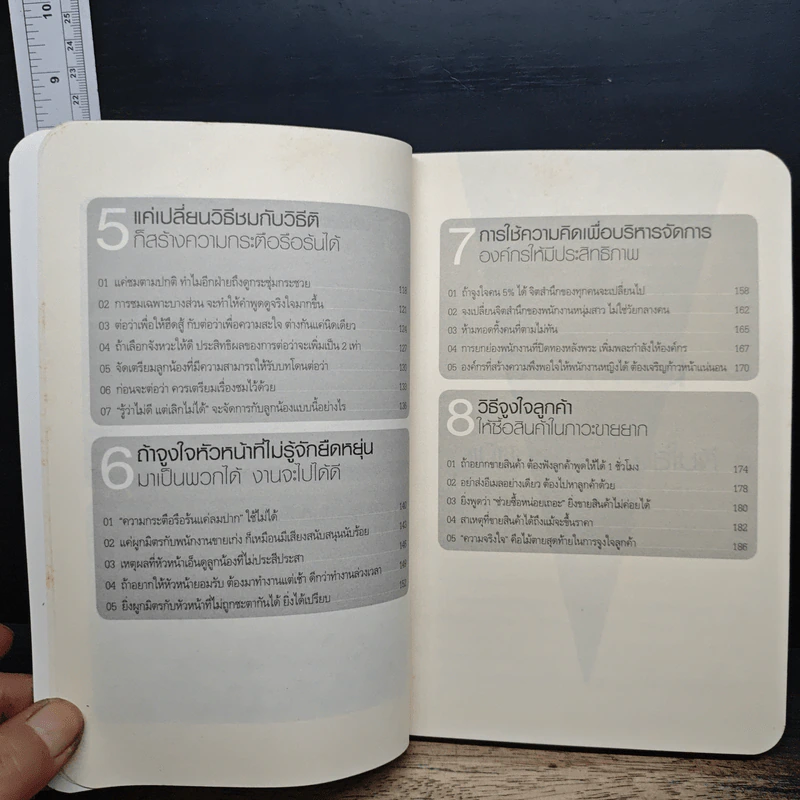 10
9
25
24
23
22
5 แค่เปลี่ยนวิธีชมกับวิธีติ
ก็สร้างความกระตือรือร้นได้
01 แค่ชมตามปกติ ทำไมอีกฝ่ายถึงดูกระชุ่มกระชวย 118
02 การชมเฉพาะบางส่วน จะทำให้คำพูดดูจริงใจมากขึ้น 121
03 ต่อว่าเพื่อให้ฮึดสู้ กับต่อว่าเพื่อความสะใจ ต่างกันแค่นิดเดียว 124
04 ถ้าเลือกจังหวะให้ดี ประสิทธิผลของการต่อว่าจะเพิ่มเป็น 2 เท่า 127
05 จัดเตรียมลูกน้องที่มีความสามารถให้รับบทโดนต่อว่า
06 ก่อนจะต่อว่า ควรเตรียมเรื่องชมไว้ด้วย
07 "รู้ว่าไม่ดี แต่เลิกไม่ได้" จะจัดการกับลูกน้องแบบนี้อย่างไร
6 ถ้าจูงใจหัวหน้าที่ไม่รู้จักยืดหยุ่น
มาเป็นพวกได้ งานจะไปได้ดี
01 "ความกระตือรือร้นแค่ลมปาก" ใช้ไม่ได้ 140
02 แค่ผูกมิตรกับพนักงานขายเก่ง ก็เหมือนมีเสียงสนับสนุนนับร้อย
03 เหตุผลที่หัวหน้าเอ็นดูลูกน้องที่ไม่ประสีประสา
04 ถ้าอยากให้หัวหน้ายอมรับ ต้องมาทำงานแต่เช้า ดีกว่าทำงานล่วงเวลา
05 ยิ่งผูกมิตรกับหัวหน้าที่ไม่ถูกชะตากันได้ ยิ่งได้เปรียบ
7 การใช้ความคิดเพื่อบริหารจัดการ
องค์กรให้มีประสิทธิภาพ
01 ถ้าจูงใจคน 5% ได้ จิตสำนึกของทุกคนจะเปลี่ยนไป 158
02 จงเปลี่ยนจิตสำนึกของพนักงานหนุ่มสาว ไม่ใช่วัยกลางคน 162
03 ห้ามทอดทิ้งคนที่ตามไม่ทัน 165
04 การยกย่องพนักงานที่ปิดทองหลังพระ เพิ่มพละกำลังให้องค์กร 167
05 องค์กรที่สร้างความพึงพอใจให้พนักงานหญิงได้ ต้องเจริญก้าวหน้าแน่นอน 170
8 วิธีจูงใจลูกค้า
ให้ซื้อสินค้าในภาวะขายยาก
01 ถ้าอยากขายสินค้า ต้องฟังลูกค้าพูดให้ได้ 1 ชั่วโมง 174
02 อย่าส่งอีเมลอย่างเดียว ต้องไปหาลูกค้าด้วย 178
03 ยิ่งพูดว่า "ช่วยซื้อหน่อยเถอะ" ยิ่งขายสินค้าไม่ค่อยได้ 180
04 สาเหตุที่ขายสินค้าได้ถึงแม้จะขึ้นราคา 182
05 "ความจริงใจ" คือไม้ตายสุดท้ายในการจูงใจลูกค้า 186